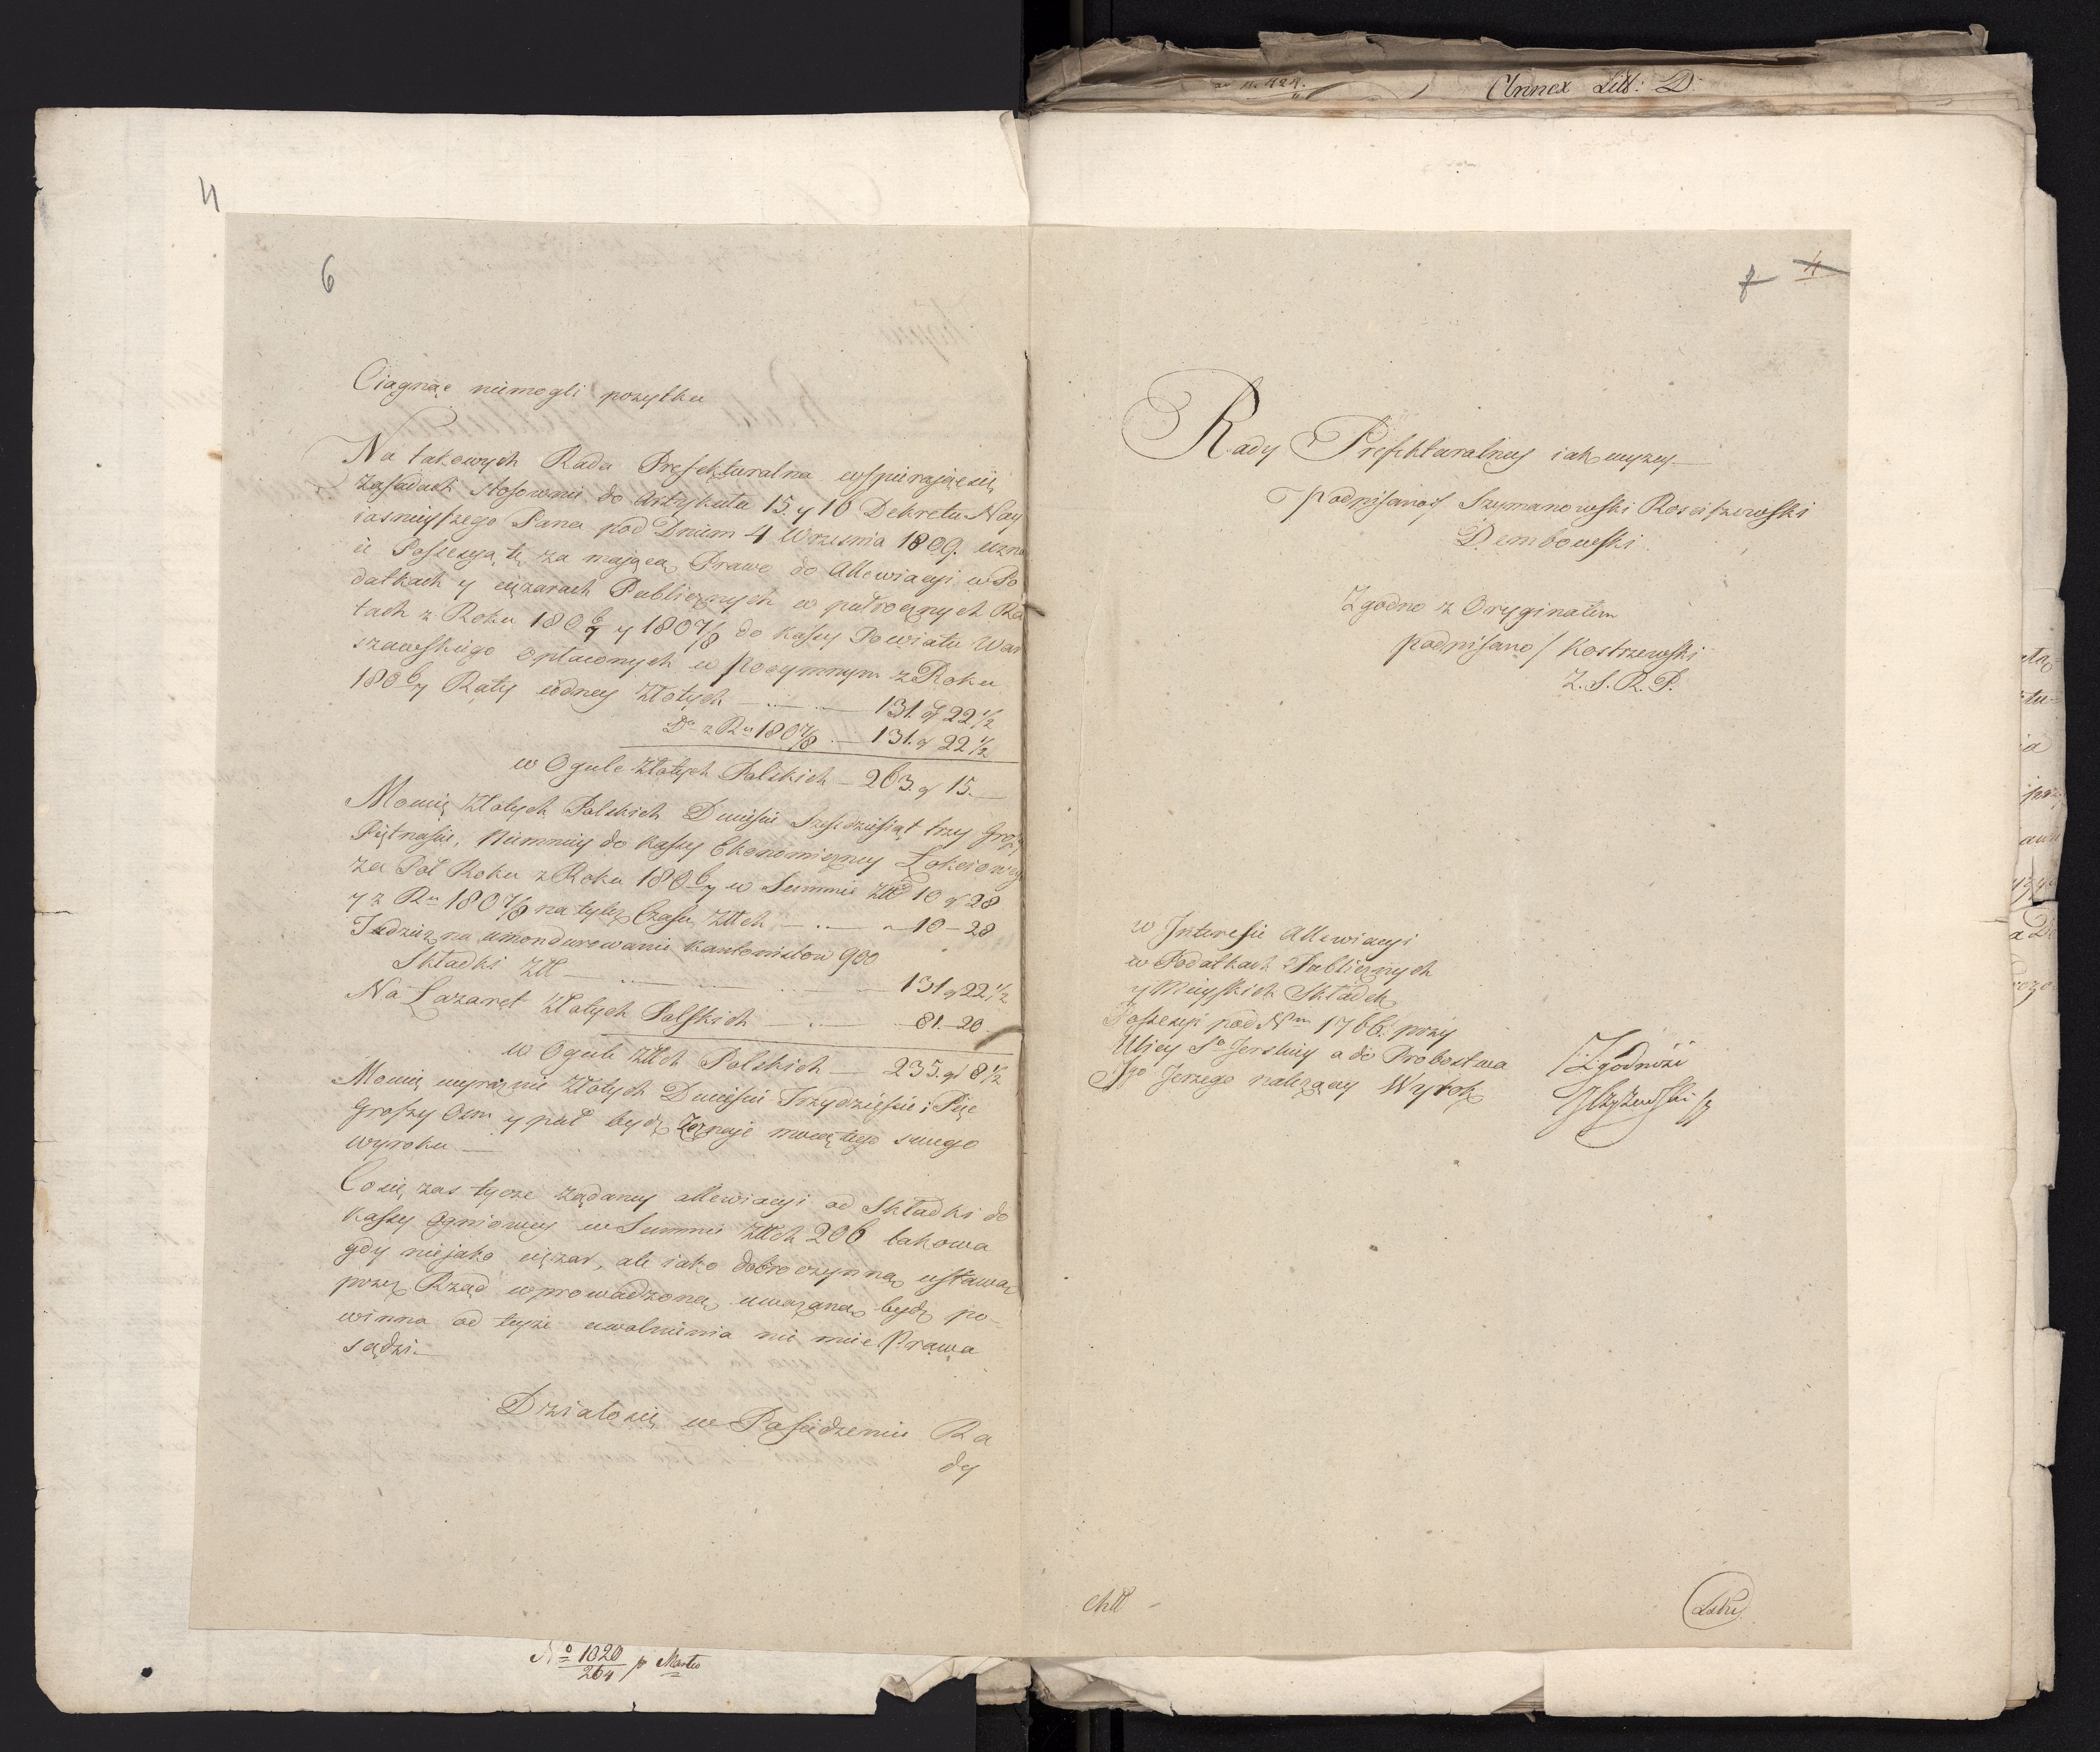 4
6
Ciągnąć niemogli pozytku
Na takowych Rada Prefekturalna wspierając się
Zasadach stosownie do Artykułu 15. y 16 Dekretu Nay
iasnieyszego Pana pod Dniem 4 Wrzesnia 1809. uzna
ie Possessyą tę za mającą Prawo do Allewiacyi w Po
datkach y ciężarach Publicznych w pułrocznych Ra
tach z Roku 1806/7 y 1807/8 do Kassy Powiatu War
szawskiego opłaconych w Poczymnym z Roku
1806/7 Raty iedney Złotych — 131. gr 22 1/2
Do z Ru 1807/8 — 131. gr 22 1/2
w Ogule Złotych Polskich — 263. gr 15. —
Mowię Złotych Polskich Dwieście Sześćdziesiąt trzy Groszy
Piętnaście, Niemniey do Kassy Ekonomiczney Łokciowey
za Poł Roku z Roku 1806/7 w Summie Złł 10 gr 28
y z Ru 1807/8 na tyleż Czasu Złłch — 10 — 28
Tudzież na umondurowanie Kantonistow 900
Składki Złł — 131 gr 22 1/2
Na Lazaret Złotych Polskich — 81. — 20
w Ogule Złłch Polskich — 235. gr 8 1/2
Mowię wyraznie Złotych Dwieście Trzydzieście i Pięć
Groszy Osm y puł bydź zeznaje mocą tego swego
wyroku —
Co się zas tycze żądaney allewiacyi od Składki do
Kassy Ogniowey w Summie Złłch 206 takowa
gdy nie jako ciężar, ale iako dobroczynną ustawą
przez Rząd wprowadzoną uważaną bydź po-
winna od teyże uwolnienia nie mieć Prawa
sądzi. —
Działo się w Posiedzeniu Ra
dy
No 1020/264 p Martio
Annex Litt: D:
7 4
Rady Prefekturalney iak wyzey —
podpisano/ Szymanowski Rosciszewski
Dembowski
Zgodno z Oryginałem
podpisano / Kostrzewski
Z. S. R. P.
w Interesie Allewiacyi
w Podatkach Publicznych
y Mieyskich Składek
Possessyi pod Nm 1766. przy
Ulicy So Jerskiey a do Probostwa
Sgo Jerzego należącey Wyrok
Zgodność